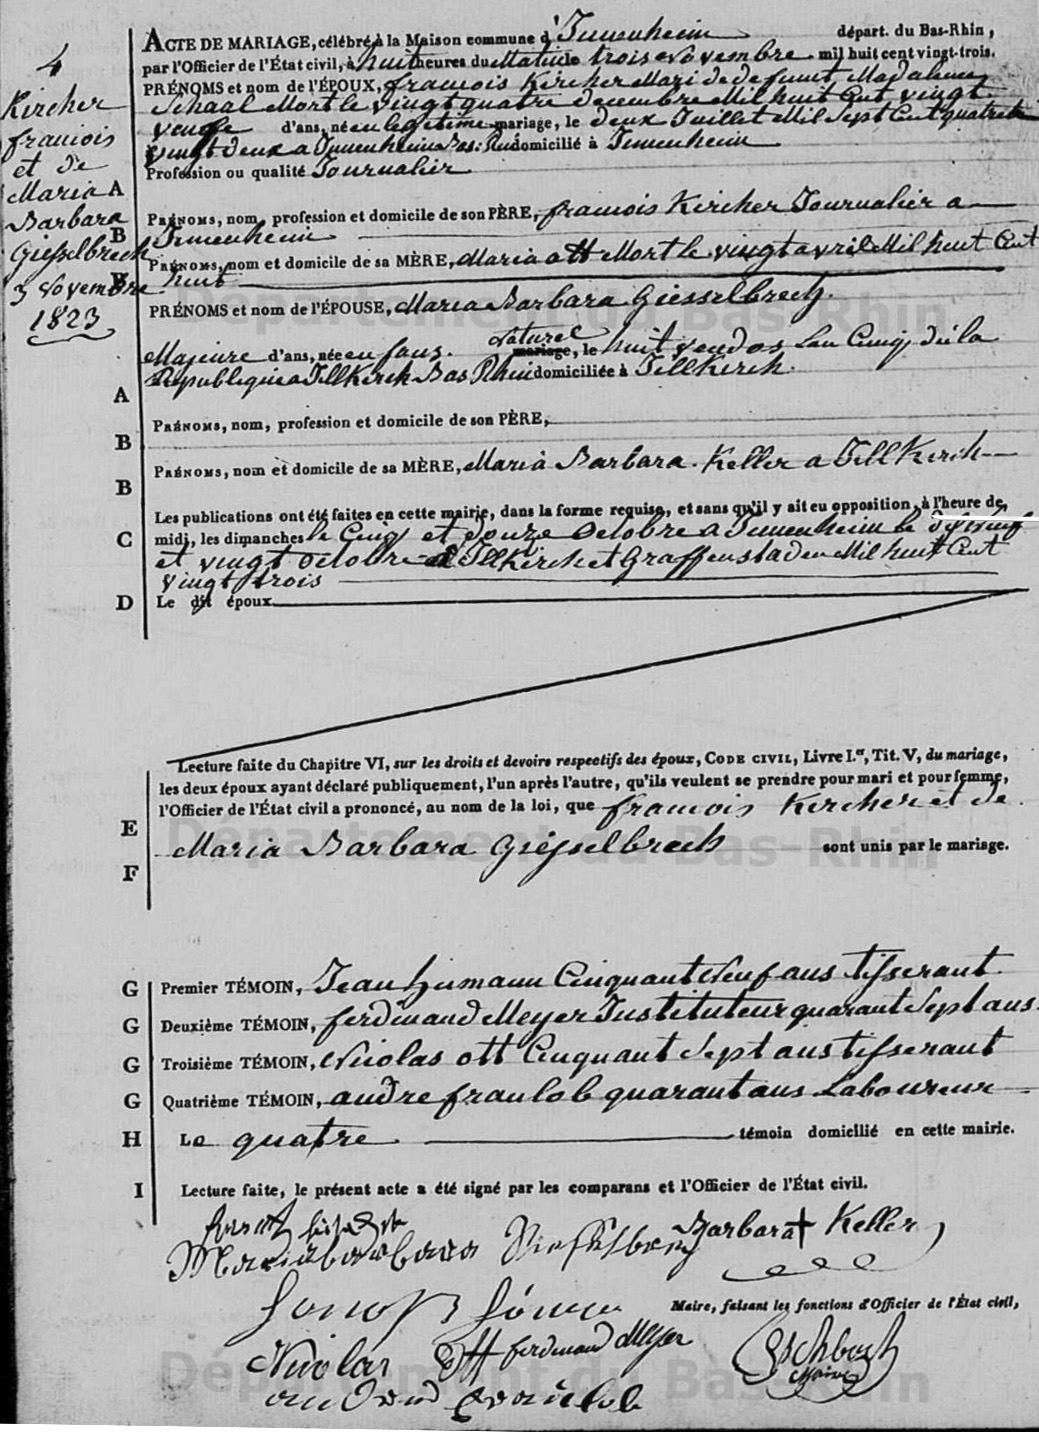 4
Kircher
francois
et de
Maria
Barbara
Giesselbrech
3 Novembre
1823
ACTE DE MARIAGE, célébré à la Maison commune d'Jmmenheim départ. du Bas-Rhin,
par l'Officier de l'État civil, à huit heures du Matin le trois Novembre mil huit cent vingt-trois.
PRÉNOMS et nom de l'ÉPOUX, francois Kircher Mari de defunt Madalena
Schaal Mort le vingt quatre decembre Mil huit Cent vingt
veuf d'ans, né en legetime mariage, le deux Juillet Mil Sept Cent quatre
vingt deux a Jmmenheim Bas: Rhin domicilié à Jmmenheim
Profession ou qualité Journalier
A PRÉNOMS, nom, profession et domicile de son PÈRE, francois Kircher Journalier a
B Jmmenheim
PRÉNOMS, nom et domicile de sa MÈRE, Maria ott Mort le vingt avril Mil huit Cent
B huit
PRÉNOMS et nom de l'ÉPOUSE, Maria Barbara Giesselbrech.
Naturel
Majeure d'ans, née en faus. mariage, le huit vendos Lan Cinq de la
Republique a Jllkirch Bas Rhin domiciliée à Jllkirch.
A
PRÉNOMS, nom, profession et domicile de son PÈRE,
B
PRÉNOMS, nom et domicile de sa MÈRE, Maria Barbara Keller a Jllkirch
B
Les publications ont été faites en cette mairie, dans la forme requise, et sans qu'il y ait eu opposition, à l'heure de
C midi, les dimanches le Cinq et douze Octobre a Jmmenheim le dixneuf
et vingt octobre a Jllkirch et Graffenstaden Mil huit Cent
vingt trois
D Le dit époux
Lecture faite du Chapitre VI, sur les droits et devoirs respectifs des époux, CODE CIVIL, Livre I.er, Tit. V, du mariage,
les deux époux ayant déclaré publiquement, l'un après l'autre, qu'ils veulent se prendre pour mari et pour femme,
l'Officier de l'État civil a prononcé, au nom de la loi, que francois Kircher et de
E
Maria Barbara Giesselbrech sont unis par le mariage.
F
Département du Bas-Rhin
G Premier TÉMOIN, Jean humann Cinquant Neuf ans tisserant
G Deuxième TÉMOIN, ferdinand Meyer Instituteur quarant Sept ans
G Troisième TÉMOIN, Nicolas ott Cinquant Sept ans tisserant
G Quatrième TÉMOIN, andre fraulob quarant ans Laboureur
H Le quatre témoin domicilié en cette mairie.
I Lecture faite, le présent acte a été signé par les comparans et l'Officier de l'État civil.
Barbara + Keller
Maire, faisant les fonctions d'Officier de l'État civil,
Nicolas Ott ferdinand Meyer
Eschbach
Maire
Département du Bas-Rhin